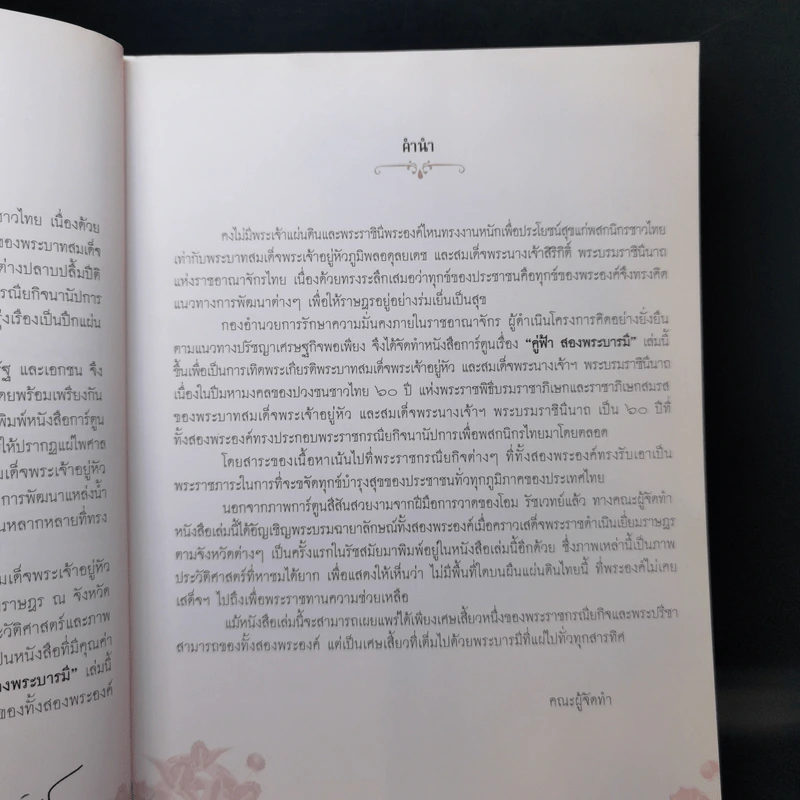 ชาวไทย เนื่องด้วย
ของพระบาทสมเด็จ
ต่างปลาบปลื้มปีติ
รณียกิจนานัปการ
รุ่งเรืองเป็นปึกแผ่น
รัฐ และเอกชน จึง
ดยพร้อมเพรียงกัน
พิมพ์หนังสือการ์ตูน
ให้ปรากฏแผ่ไพศาล
มเด็จพระเจ้าอยู่หัว
การพัฒนาแหล่งน้ำ
นหลากหลายที่ทรง
มเด็จพระเจ้าอยู่หัว
ราษฎร ณ จังหวัด
ะวัติศาสตร์และภาพ
ป็นหนังสือที่มีคุณค่า
องพระบารมี” เล่มนี้
ของทั้งสองพระองค์
คำนำ
คงไม่มีพระเจ้าแผ่นดินและพระราชินีพระองค์ไหนทรงงานหนักเพื่อประโยชน์สุขแก่พสกนิกรชาวไทย
เท่ากับพระบาทสมเด็จพระเจ้าอยู่หัวภูมิพลอดุลยเดช และสมเด็จพระนางเจ้าสิริกิติ์ พระบรมราชินีนาถ
แห่งราชอาณาจักรไทย เนื่องด้วยทรงระลึกเสมอว่าทุกข์ของประชาชนคือทุกข์ของพระองค์จึงทรงคิด
แนวทางการพัฒนาต่างๆ เพื่อให้ราษฎรอยู่อย่างร่มเย็นเป็นสุข
กองอำนวยการรักษาความมั่นคงภายในราชอาณาจักร ผู้ดำเนินโครงการคิดอย่างยั่งยืน
ตามแนวทางปรัชญาเศรษฐกิจพอเพียง จึงได้จัดทำหนังสือการ์ตูนเรื่อง “คู่ฟ้า สองพระบารมี” เล่มนี้
ขึ้นเพื่อเป็นการเทิดพระเกียรติพระบาทสมเด็จพระเจ้าอยู่หัว และสมเด็จพระนางเจ้าฯ พระบรมราชินีนาถ
เนื่องในปีมหามงคลของปวงชนชาวไทย ๖๐ ปี แห่งพระราชพิธีบรมราชาภิเษกและราชาภิเษกสมรส
ของพระบาทสมเด็จพระเจ้าอยู่หัว และสมเด็จพระนางเจ้าฯ พระบรมราชินีนาถ เป็น ๖๐ ปีที่
ทั้งสองพระองค์ทรงประกอบพระราชกรณียกิจนานัปการเพื่อพสกนิกรไทยมาโดยตลอด
โดยสาระของเนื้อหาเน้นไปที่พระราชกรณียกิจต่างๆ ที่ทั้งสองพระองค์ทรงรับเอาเป็น
พระราชภาระในการที่จะขจัดทุกข์บำรุงสุขของประชาชนทั่วทุกภูมิภาคของประเทศไทย
นอกจากภาพการ์ตูนสีสันสวยงามจากฝีมือการวาดของโอม รัชเวทย์แล้ว ทางคณะผู้จัดทำ
หนังสือเล่มนี้ได้อัญเชิญพระบรมฉายาลักษณ์ทั้งสองพระองค์เมื่อคราวเสด็จพระราชดำเนินเยี่ยมราษฎร
ตามจังหวัดต่างๆ เป็นครั้งแรกในรัชสมัยมาพิมพ์อยู่ในหนังสือเล่มนี้อีกด้วย ซึ่งภาพเหล่านี้เป็นภาพ
ประวัติศาสตร์ที่หาชมได้ยาก เพื่อแสดงให้เห็นว่า ไม่มีพื้นที่ใดบนผืนแผ่นดินไทยนี้ ที่พระองค์ไม่เคย
เสด็จฯ ไปถึงเพื่อพระราชทานความช่วยเหลือ
แม้หนังสือเล่มนี้จะสามารถเผยแพร่ได้เพียงเศษเสี้ยวหนึ่งของพระราชกรณียกิจและพระปรีชา
สามารถของทั้งสองพระองค์ แต่เป็นเศษเสี้ยวที่เต็มไปด้วยพระบารมีที่แผ่ไปทั่วทุกสารทิศ
คณะผู้จัดทำ